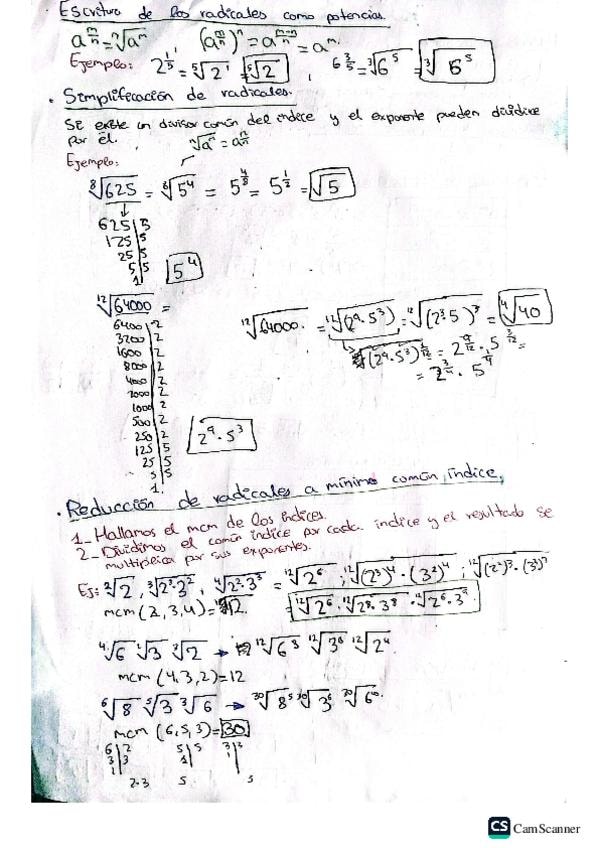 Escritura de los radicales como potencias.
a^(m/n) = ⁿ√a^m (a^(m/n))^n = a^(m·n/n) = a^m.
Ejemplo: 2^(1/5) = ⁵√2¹ = ⁵√2 , 6^(3/5) = ³√6⁵ = ³√6⁵
· Simplificación de radicales.
Se existe un divisor común del índice y el exponente pueden dividirse
por él. ⁿ√a^m = a^(m/n)
Ejemplo:
⁸√625 = ⁸√5⁴ = 5^(4/8) = 5^(1/2) = √5
625 5
125 5
25 5
5 5
1
5⁴
¹²√64000 =
¹²√64000 = ¹²√(2⁹·5³) = ¹²√(2³5)³ = ⁴√40
(2⁹·5³)^(1/12) = 2^(9/12) · 5^(3/12) =
= 2^(3/4) · 5^(1/4)
6400 2
3200 2
1600 2
8000 2
4000 2
2000 2
1000 2
500 2
250 2
125 5
25 5
5 5
1.
2⁹·5³
· Reducción de radicales a mínimo común índice.
1_ Hallamos el mcm de los índices.
2_ Dividimos el común índice por cada índice y el resultado se
multiplica por sus exponentes.
Ej: ²√2, ³√2²·3², ⁴√2²·3³ = ¹²√2⁶ ; ¹²√(2²)⁴·(3²)⁴ ; ¹²√(2²)³·(3³)³
mcm (2,3,4) = 12 = ¹²√2⁶ · ¹²√2⁸·3⁸ · ¹²√2⁶·3⁹
⁴√6 ³√3 ²√2 → ¹²√6³ ¹²√3⁸ ¹²√2⁴
mcm (4,3,2) = 12
⁶√8 ⁵√3 ³√6 → ³⁰√8⁵ ³⁰√3⁶ ³⁰√6¹⁰.
mcm (6,5,3) = 30
6 2 5 5 3 3
3 3 1 1
1
2·3 5 5
CS CamScanner